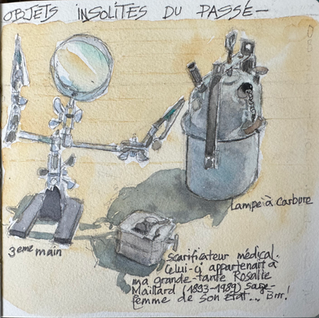 OBJETS INSOLITES DU PASSÉ—
Lampe à Carbure
3eme main
Scarificateur médical.
Celui-ci appartenait à
ma grande-tante Rosalie
Maillard (1893-1989) sage-
femme de son état... Brrr!